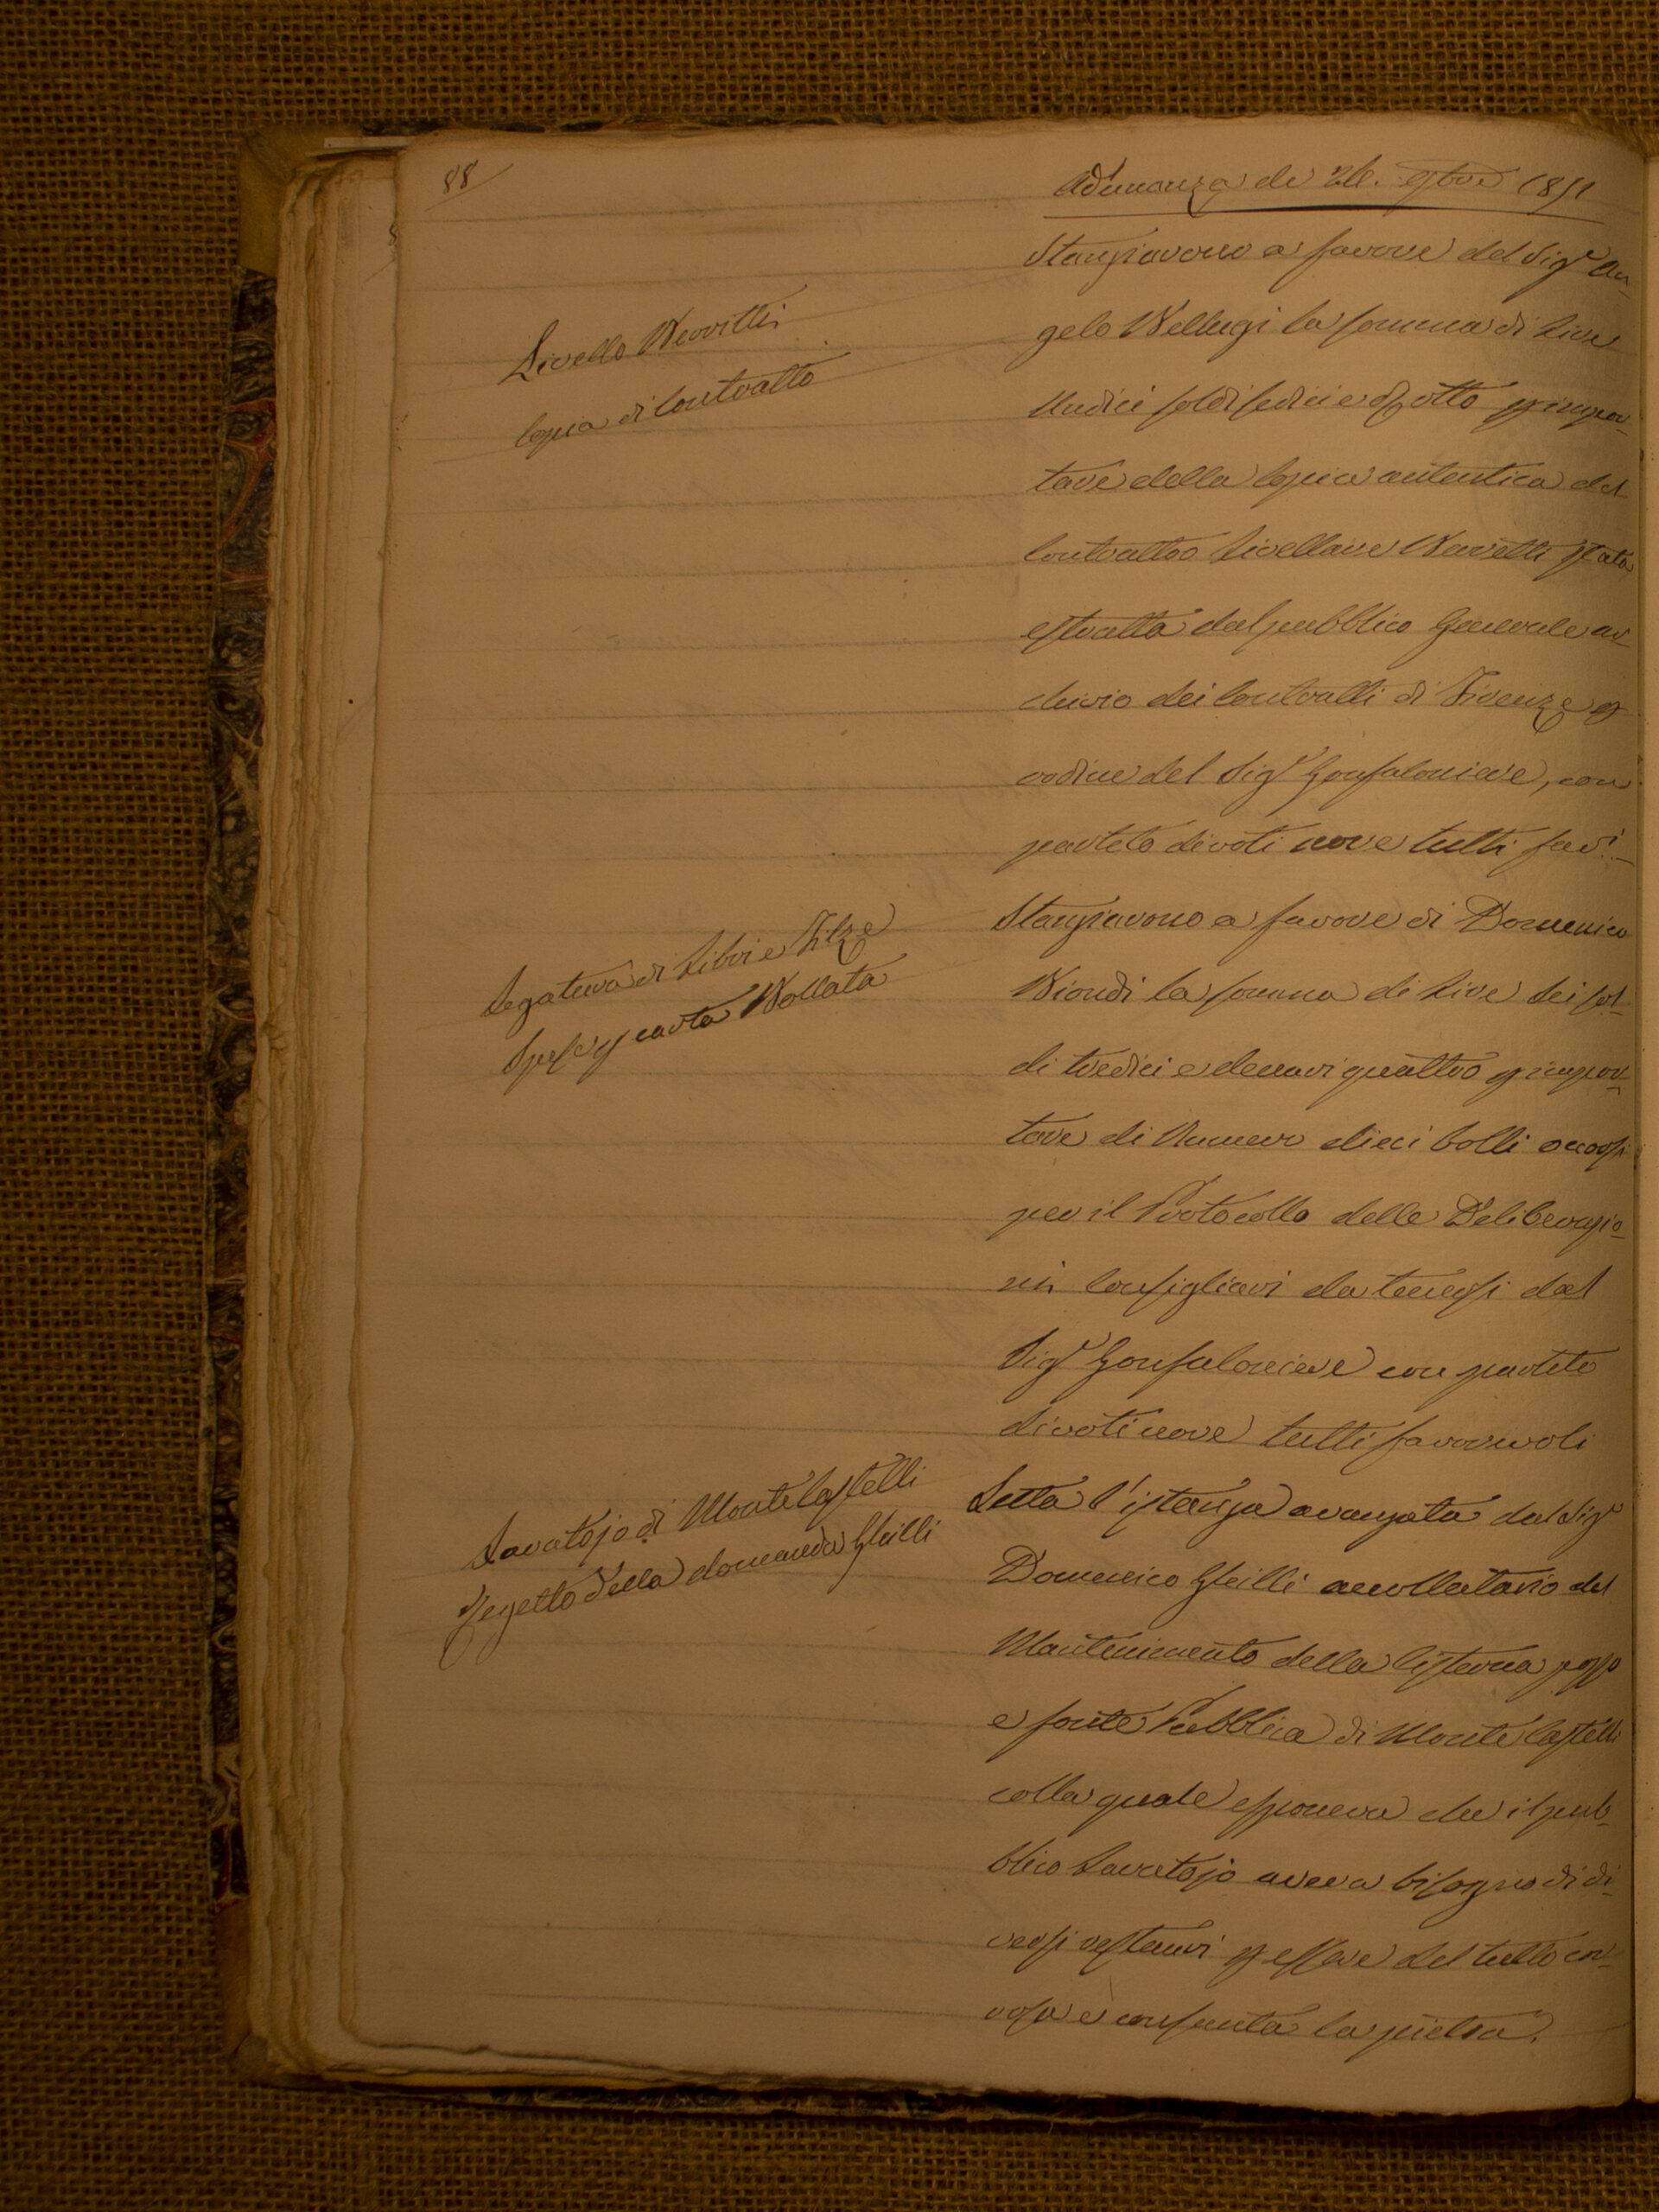 88
Adunanza de 26. 9bre 1851
Stanziarono a favore del Sigr An-
gelo Bellugi la somma di Lire
Livello Berretti
Copia di Contratto
Undici soldi sedici e d. otto p impor-
tare della Copia autentica del
Contratto Livellare Berretti stata
estratta dal pubblico Generale ar-
chivio dei Contratti di Firenze p
ordine del Sigr Gonfaloniere, con
partito di voti nove tutti favi.
Stanziarono a favore di Domenico
Legatura di Libri e Filze
Spese p carta Bollata
Biondi la somma di Lire Sei sol-
di tredici e denari quattro p impor-
tare di Numero dieci bolli occorsi
per il Protocollo delle Deliberazio-
ni Consigliari da tenersi dal
Sigr Gonfaloniere con partito
di voti nove tutti favorevoli
Lavatojo di Monte Castelli
Regetto della domanda Ghilli
Letta l'istanza avanzata dal Sigr
Domenico Ghilli accollatario del
Mantenimento della Cisterna pozzo
e fonte Pubblica di Monte Castelli
colla quale esponeva che il pub-
blico Lavatojo aveva bisogno di di-
versi restauri p essere del tutto cor-
rosa e consunta la pietra,